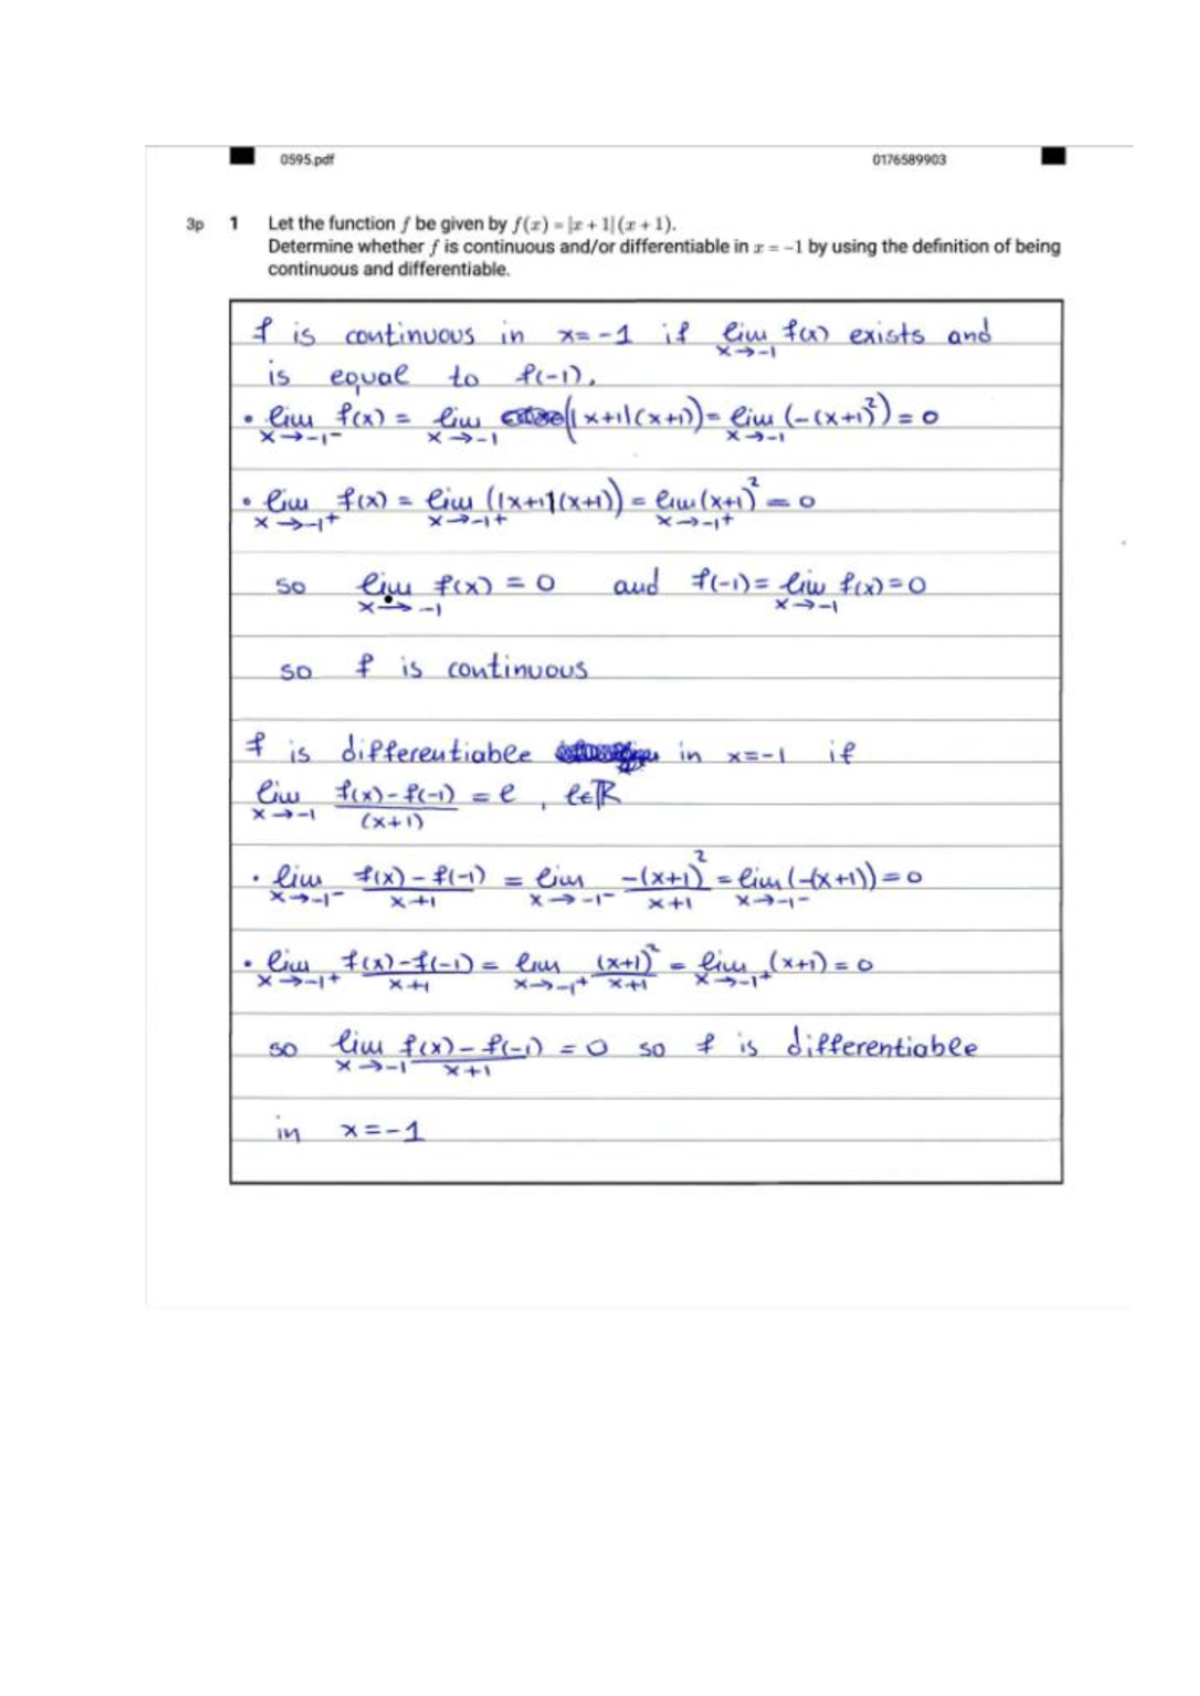 0595.pdf 0176589903
3p 1 Let the function f be given by f(x) = |x + 1|(x + 1).
Determine whether f is continuous and/or differentiable in x = −1 by using the definition of being
continuous and differentiable.
f is continuous in x = -1 if lim x→-1 f(x) exists and
is equal to f(-1).
• lim x→-1⁻ f(x) = lim x→-1 (|x+1|(x+1)) = lim x→-1 (-(x+1)²) = 0
• lim x→-1⁺ f(x) = lim x→-1⁺ (|x+1|(x+1)) = lim x→-1⁺ (x+1)² = 0
so lim x→-1 f(x) = 0 and f(-1) = lim x→-1 f(x) = 0
so f is continuous
f is differentiable in x=-1 if
lim x→-1 (f(x) - f(-1))/(x+1) = l, l∈ℝ
• lim x→-1⁻ (f(x) - f(-1))/(x+1) = lim x→-1⁻ (-(x+1)²)/(x+1) = lim x→-1⁻ (-(x+1)) = 0
• lim x→-1⁺ (f(x) - f(-1))/(x+1) = lim x→-1⁺ (x+1)²/(x+1) = lim x→-1⁺ (x+1) = 0
so lim x→-1 (f(x) - f(-1))/(x+1) = 0 so f is differentiable
in x = -1